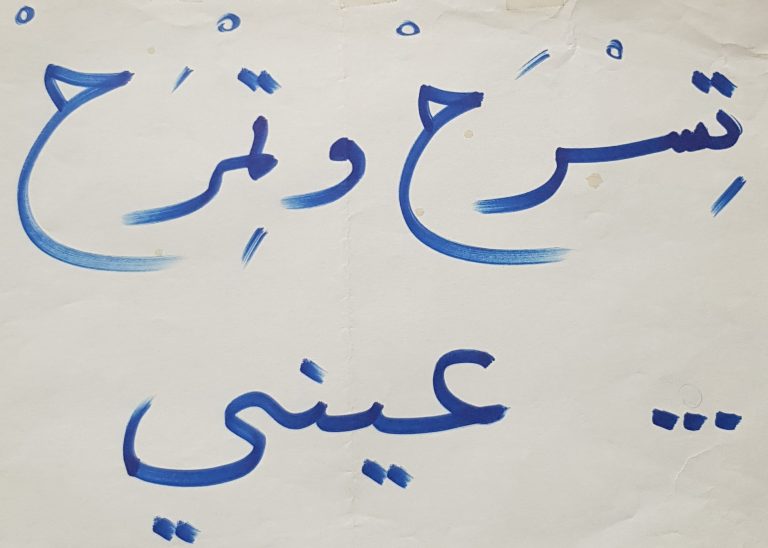 تِسْرَحْ و تِمْرَحْ
... عيني